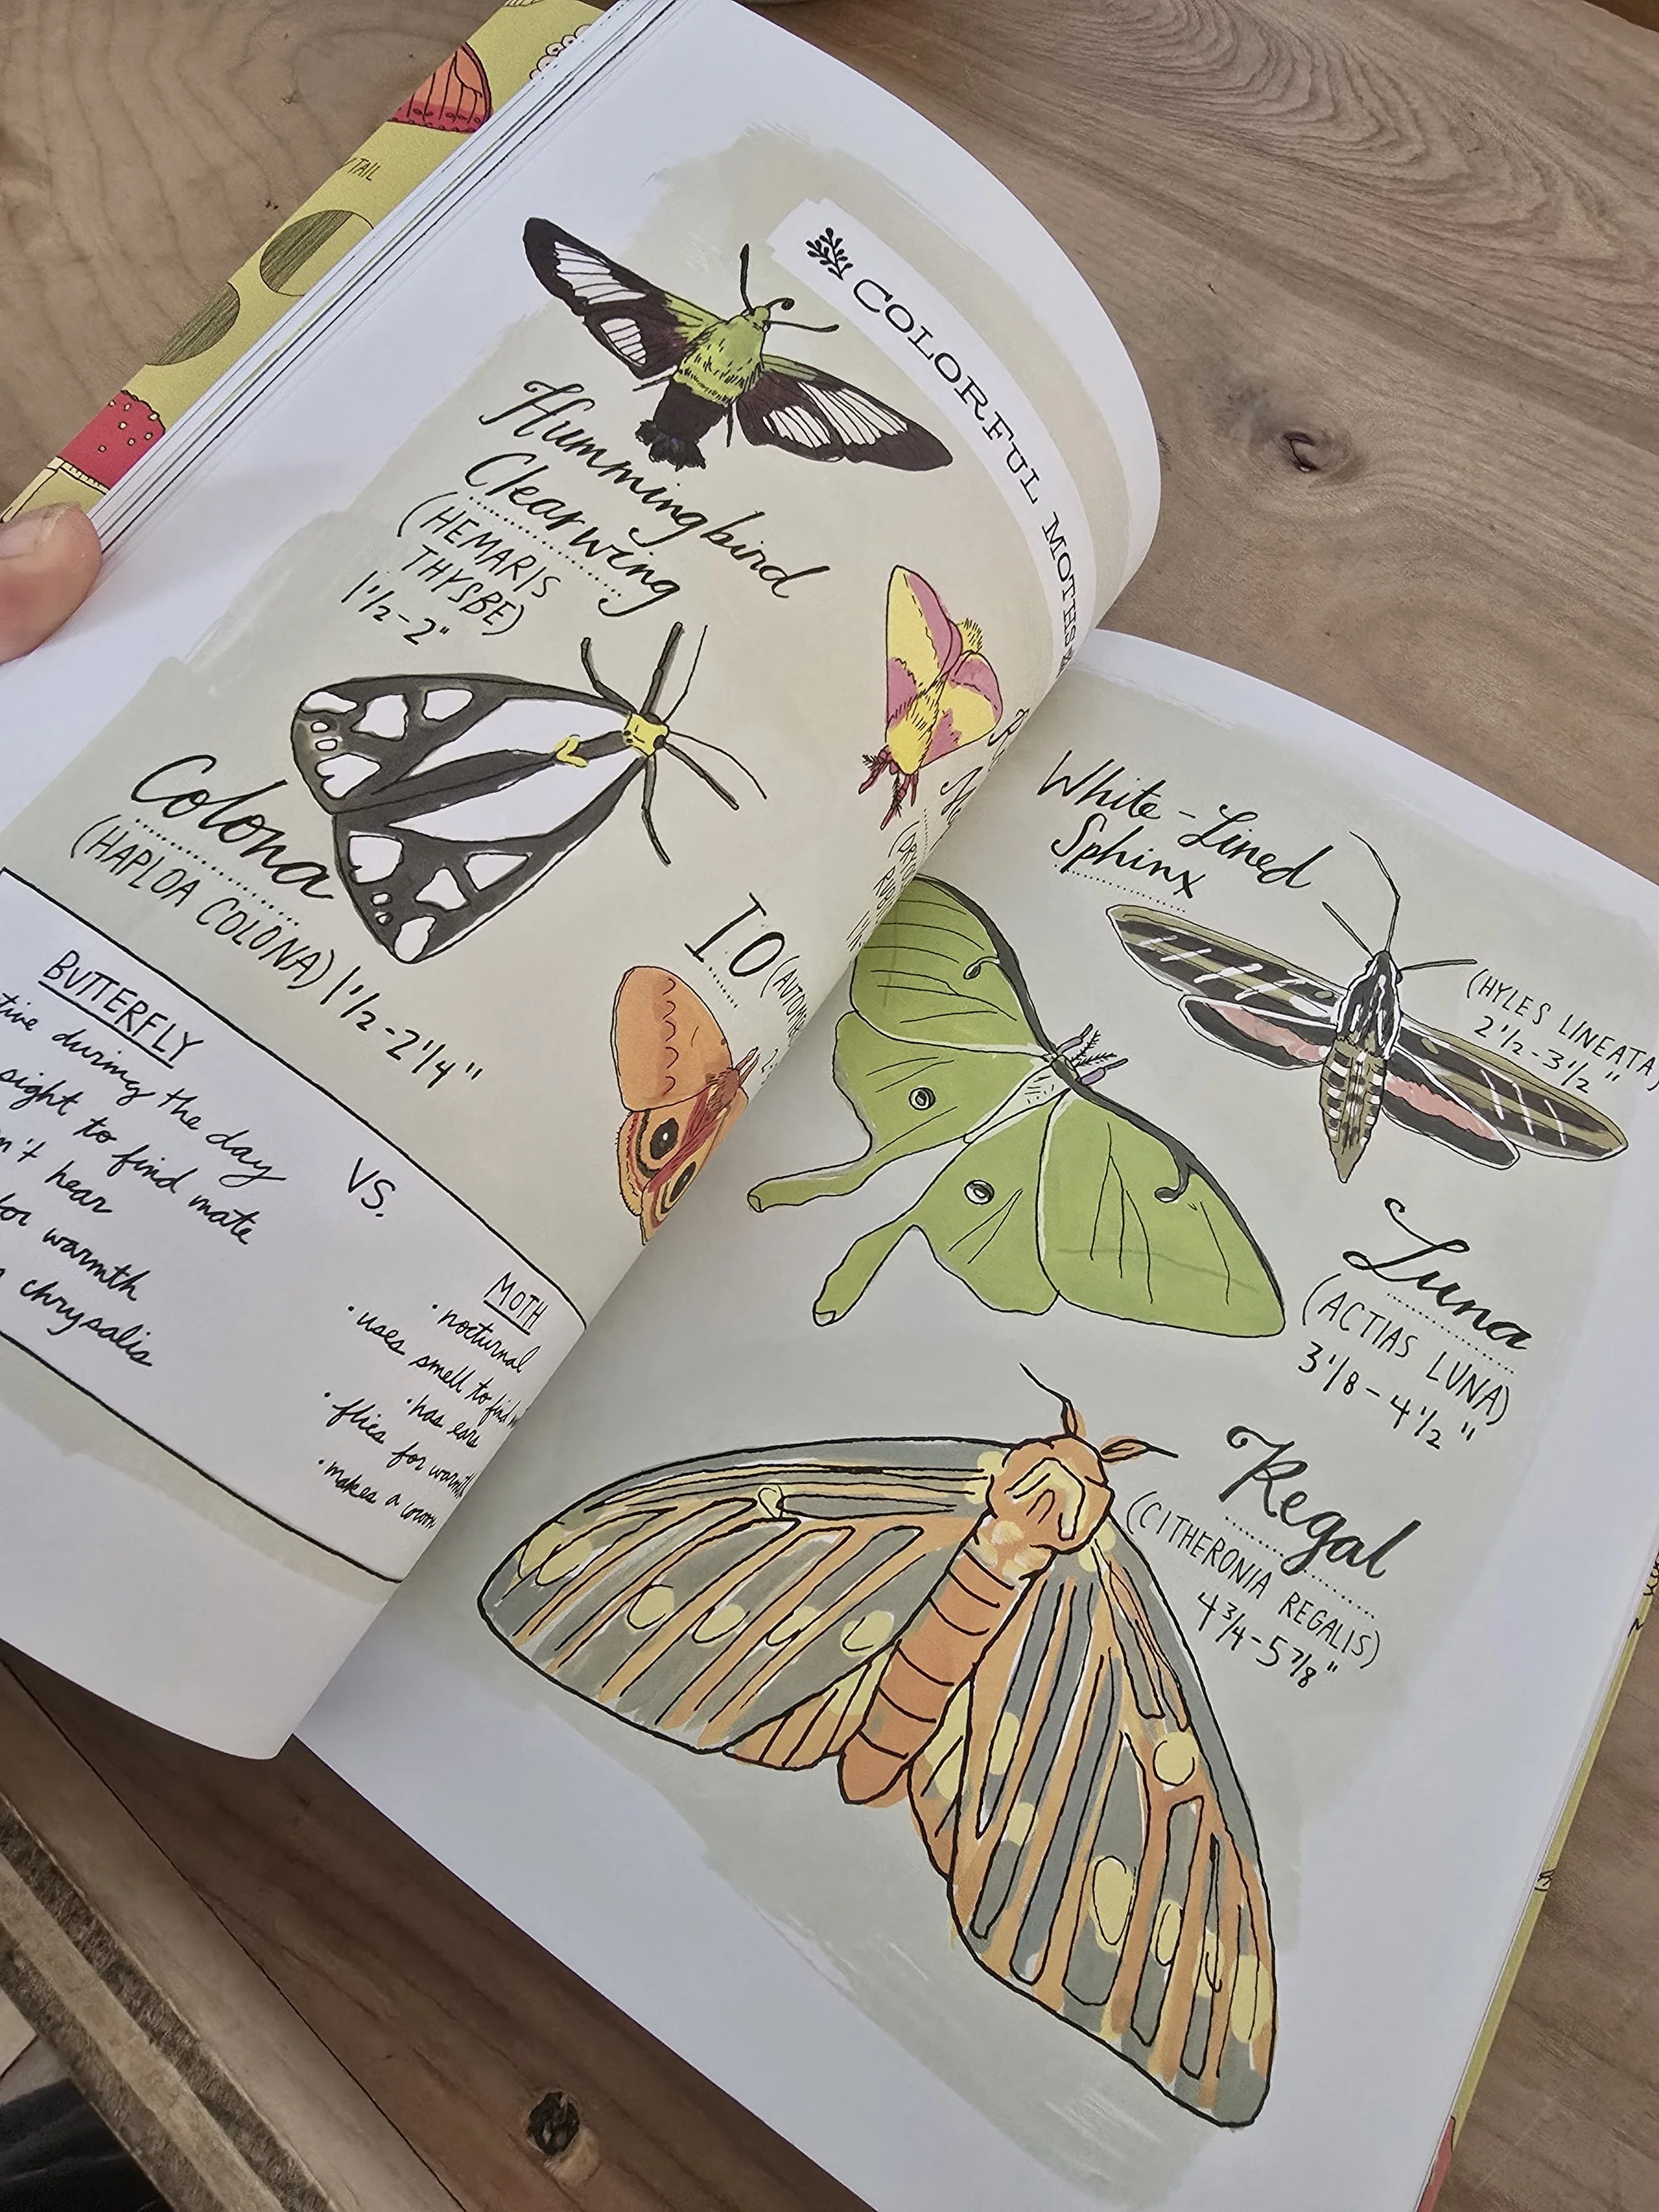 TAIL
COLORFUL MOTHS
Hummingbird
Clearwing
(HEMARIS
THYSBE)
1 1/2-2"
Colona
(HAPLOA COLONA) 1 1/2-2 1/4"
IO
BUTTERFLY
during the day
sight to find mate
hear
for warmth
chrysalis
VS.
MOTH
• nocturnal
• uses smell to find
• has ears
• flies for warmth
• makes a
White-Lined
Sphinx
(HYLES LINEATA)
2 1/2-3 1/2"
Luna
(ACTIAS LUNA)
3 1/8-4 1/2"
Regal
(CITHERONIA REGALIS)
4 3/4-5 7/8"